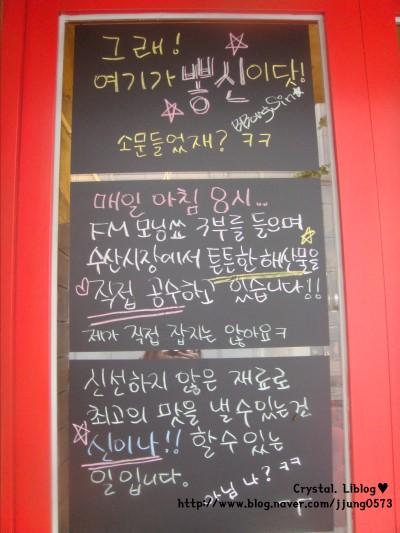 그래!
여기가 뽕신이닷!
BBongSin
소문들었재? ㅋㅋ
매일 아침 8시..
FM 모닝쑈 3부를 들으며
수산시장에서 튼튼한 해산물을
직접 공수하고 있습니다!!
제가 직접 잡지는 않아요ㅋ
신선하지 않은 재료로
최고의 맛을 낼수있는건
신이나!! 할수있는
일입니다.
아님 나? ㅋㅋ
Crystal. Liblog♥
http://www.blog.naver.com/jjung0573